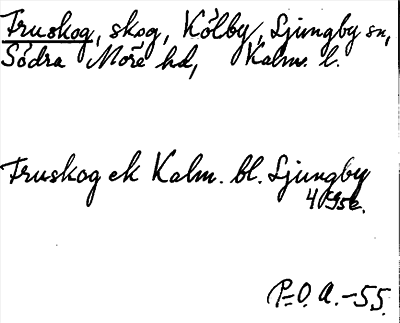 Fruskog, skog, Kölby, Ljungby sn,
Södra Möre hd, Kalm. l.
Fruskog ek Kalm. bl. Ljungby
P=O. A. -55.